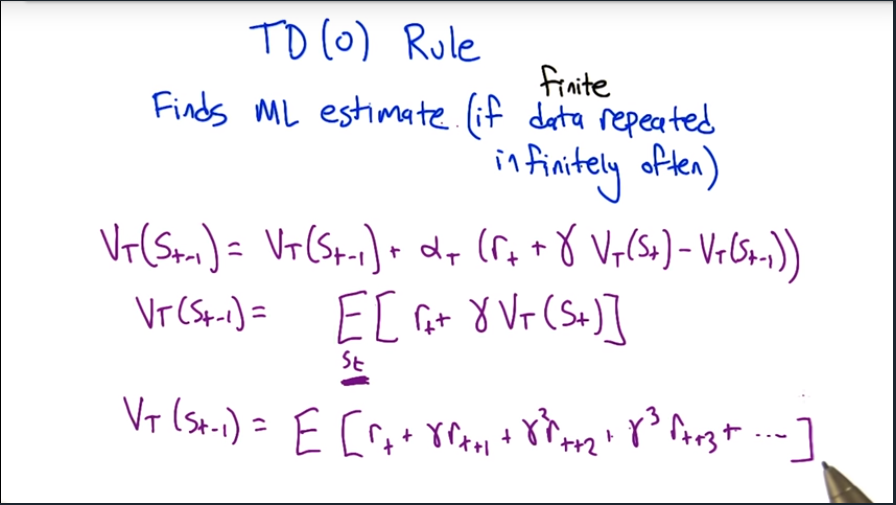 TD(0) Rule
finite
Finds ML estimate (if data repeated
infinitely often)
V_T(S_{t-1}) = V_T(S_{t-1}) + α_T (r_t + γ V_T(S_t) - V_T(S_{t-1}))
V_T(S_{t-1}) = E_{S_t} [r_t + γ V_T(S_t)]
V_T(S_{t-1}) = E [r_t + γ r_{t+1} + γ² r_{t+2} + γ³ r_{t+3} + ...]